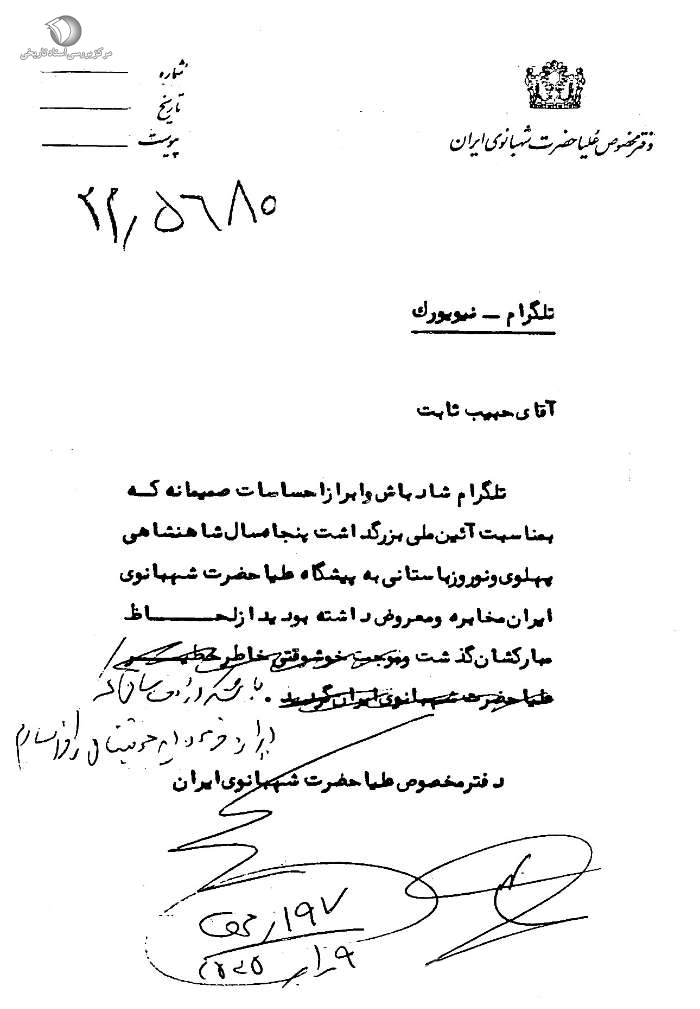 مرکز بررسی اسناد تاریخی
شماره
تاریخ
پیوست
دفتر مخصوص علیاحضرت شهبانوی ایران
تلگرام – نیویورک
آقای حبیب ثابت
تلگرام شادباش و ابراز احساسات صمیمانه که
بمناسبت آئین ملی بزرگداشت پنجاه سال شاهنشاهی
پهلوی و نوروز باستانی به پیشگاه علیاحضرت شهبانوی
ایران مخابره و معروض داشته بودید از لحاظ
مبارکشان گذشت و موجب خوشوقتی خاطر خطیر
علیاحضرت شهبانوی ایران گردید .
دفتر مخصوص علیاحضرت شهبانوی ایران